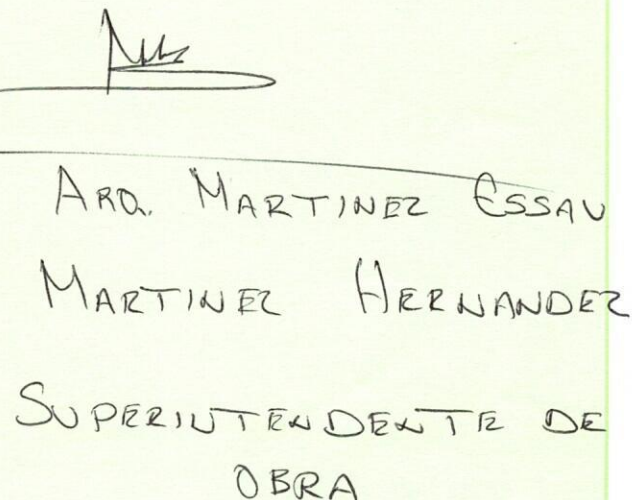 ARQ. MARTINEZ ESSAU
MARTINEZ HERNANDEZ
SUPERINTENDENTE DE
OBRA